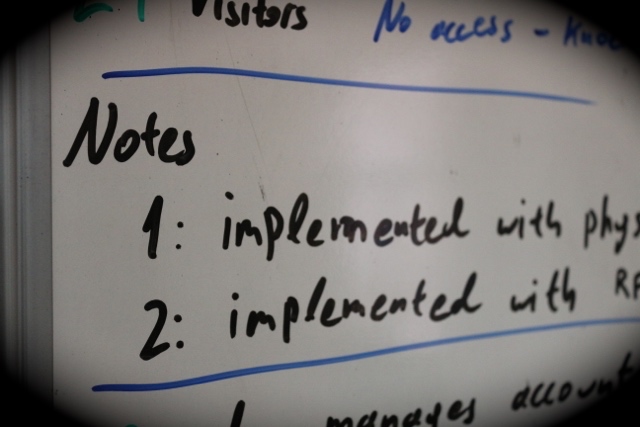 Visitors No access -
Notes
1: implemented with phys
2: implemented with RF
manages account